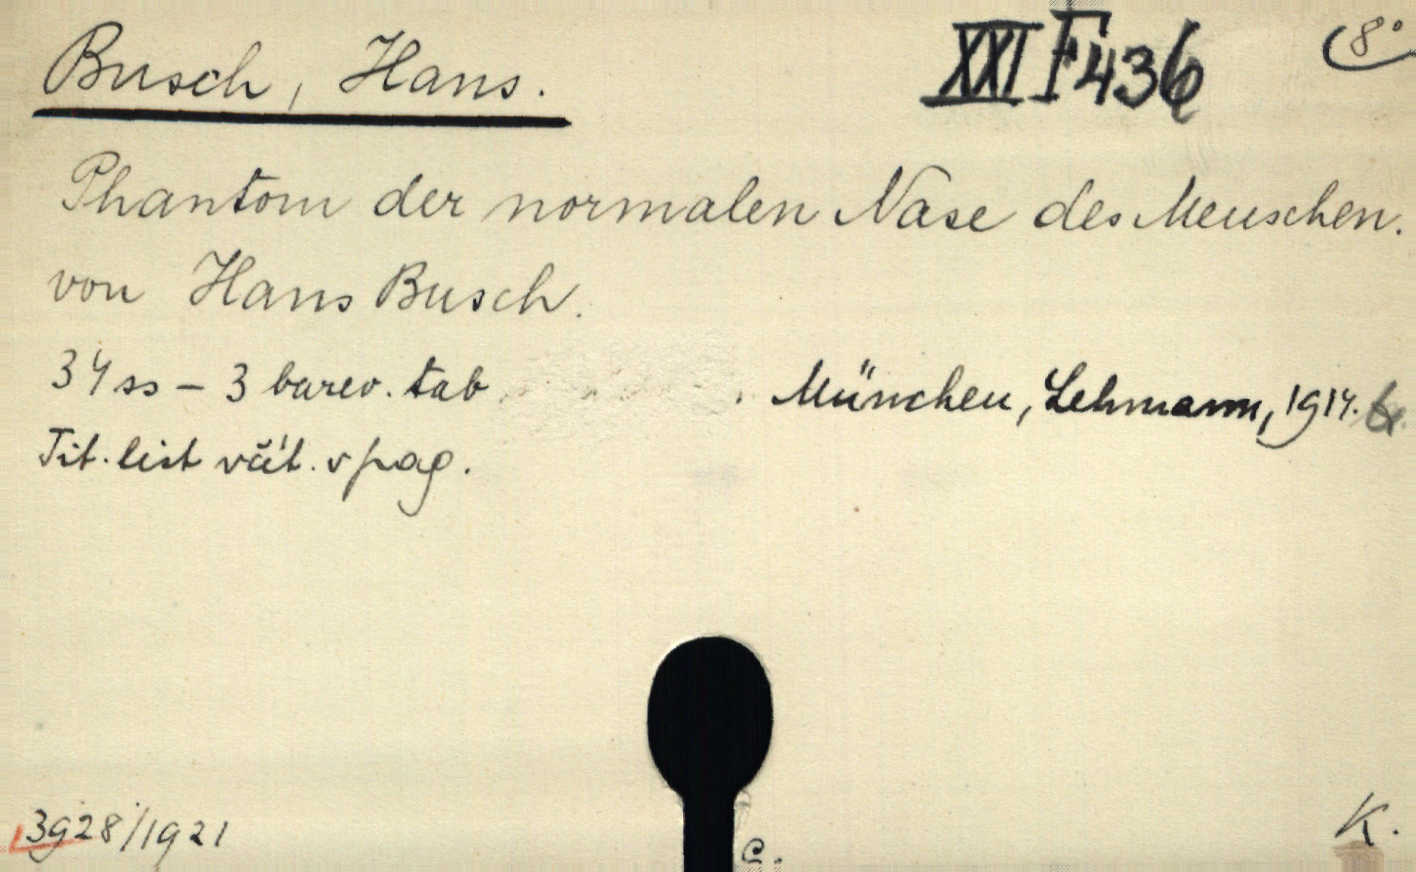 Busch, Hans. XXI F 436 8°
Phantom der normalen Nase des Menschen.
von Hans Busch.
34 ss - 3 barev. tab. München, Lehmann, 1914.
Tit. list váit. v pag.
3928/1921
c.
K.